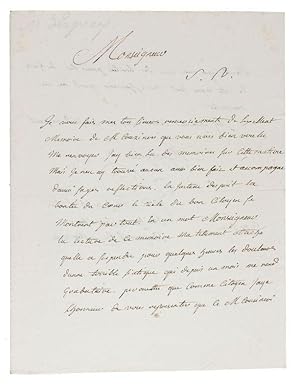 Monseigneur
Je vous fais mes tres humes remerciements de
Memoire de M Cousinery que vous avez bien voulu
Me renvoyer J'ay bien lu des memoires sur cette matiere
Mais je n'en ay trouvé aucun aussi bien fait et accompagné
d'aussi sages reflections. la justesse d'esprit la
bonté du Coeur le Zele du bon Citoyen se
Montrent par tout. En un mot Monseigneur
la lecture de ce memoire m'a tellement
quelle a suspendu pour quelques heures les douleurs
dune terrible Sciatique qui depuis un mois me rend
permettez que comme Citoyen j'aye
lhonneur de vous representer que le M Cousinery